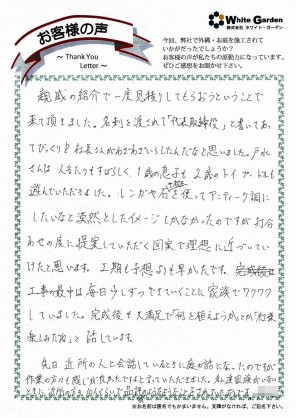 お客様の声
～ Thank You
Letter ～
White Garden
株式会社 ホワイト・ガーデン
今回、弊社で外構・お庭を施工されて
いかがだったでしょうか？
お客様の声が私たちの原動力になっています。
ぜひご感想をお聞かせ下さい。
親戚の紹介で一度見積りしてもらおうということで
来て頂きました。名刺を渡されて「代表取締役」と書いてあ
ってびっくり!! 社長さんがわざわざいらしたんだなと思いました。戸水
さんは 人あたりもすばらしく、1歳の息子も 2歳のトイプードルも
遊んでいただきました。レンガや石を使ってアンティーク調に
したいなと漠然としたイメージしかなかったのですが 打合
わせの度に提案していただく図案で理想に近づいてい
けたと思います。工期も予想より早かったです。
工事の最中は毎日少しずつできていくことに家族でワクワク
していました。完成後も大満足で「何を植えようか」とか「
楽しみだね」と話しています。
先日、近所の人と会話しているときに庭の話になったのですが
作業の方々も感じが良かったですねと言っていただきました。
※お名前は匿名でもかまいません。支障がなければ、ご記名下さい。